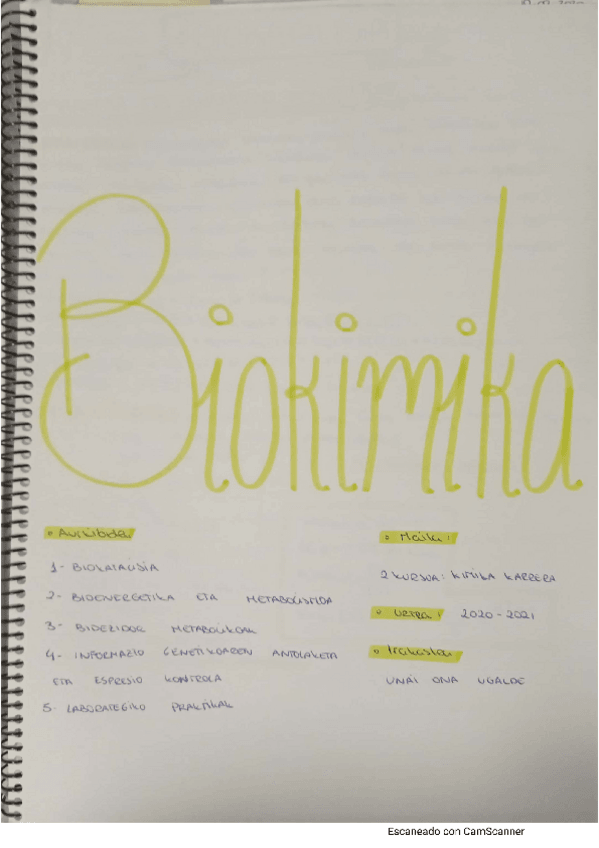 Biokimika
• Aurkibidea
1- BIOKATALISIA
2- BIOENERGETIKA ETA METABOLISMOA
3- BIDEZIDOR METABOLIKOAK
4- INFORMAZIO GENETIKOAREN ANTOLAKETA
ETA ESPRESIO KONTROLA
5- LABORATEGIKO PRAKTIKAK
• Maila:
2 KURSOA: KIMIKA KARRERA
• Urtea: 2020-2021
• Irakaslea
UNAI ONA UGALDE
Escaneado con CamScanner